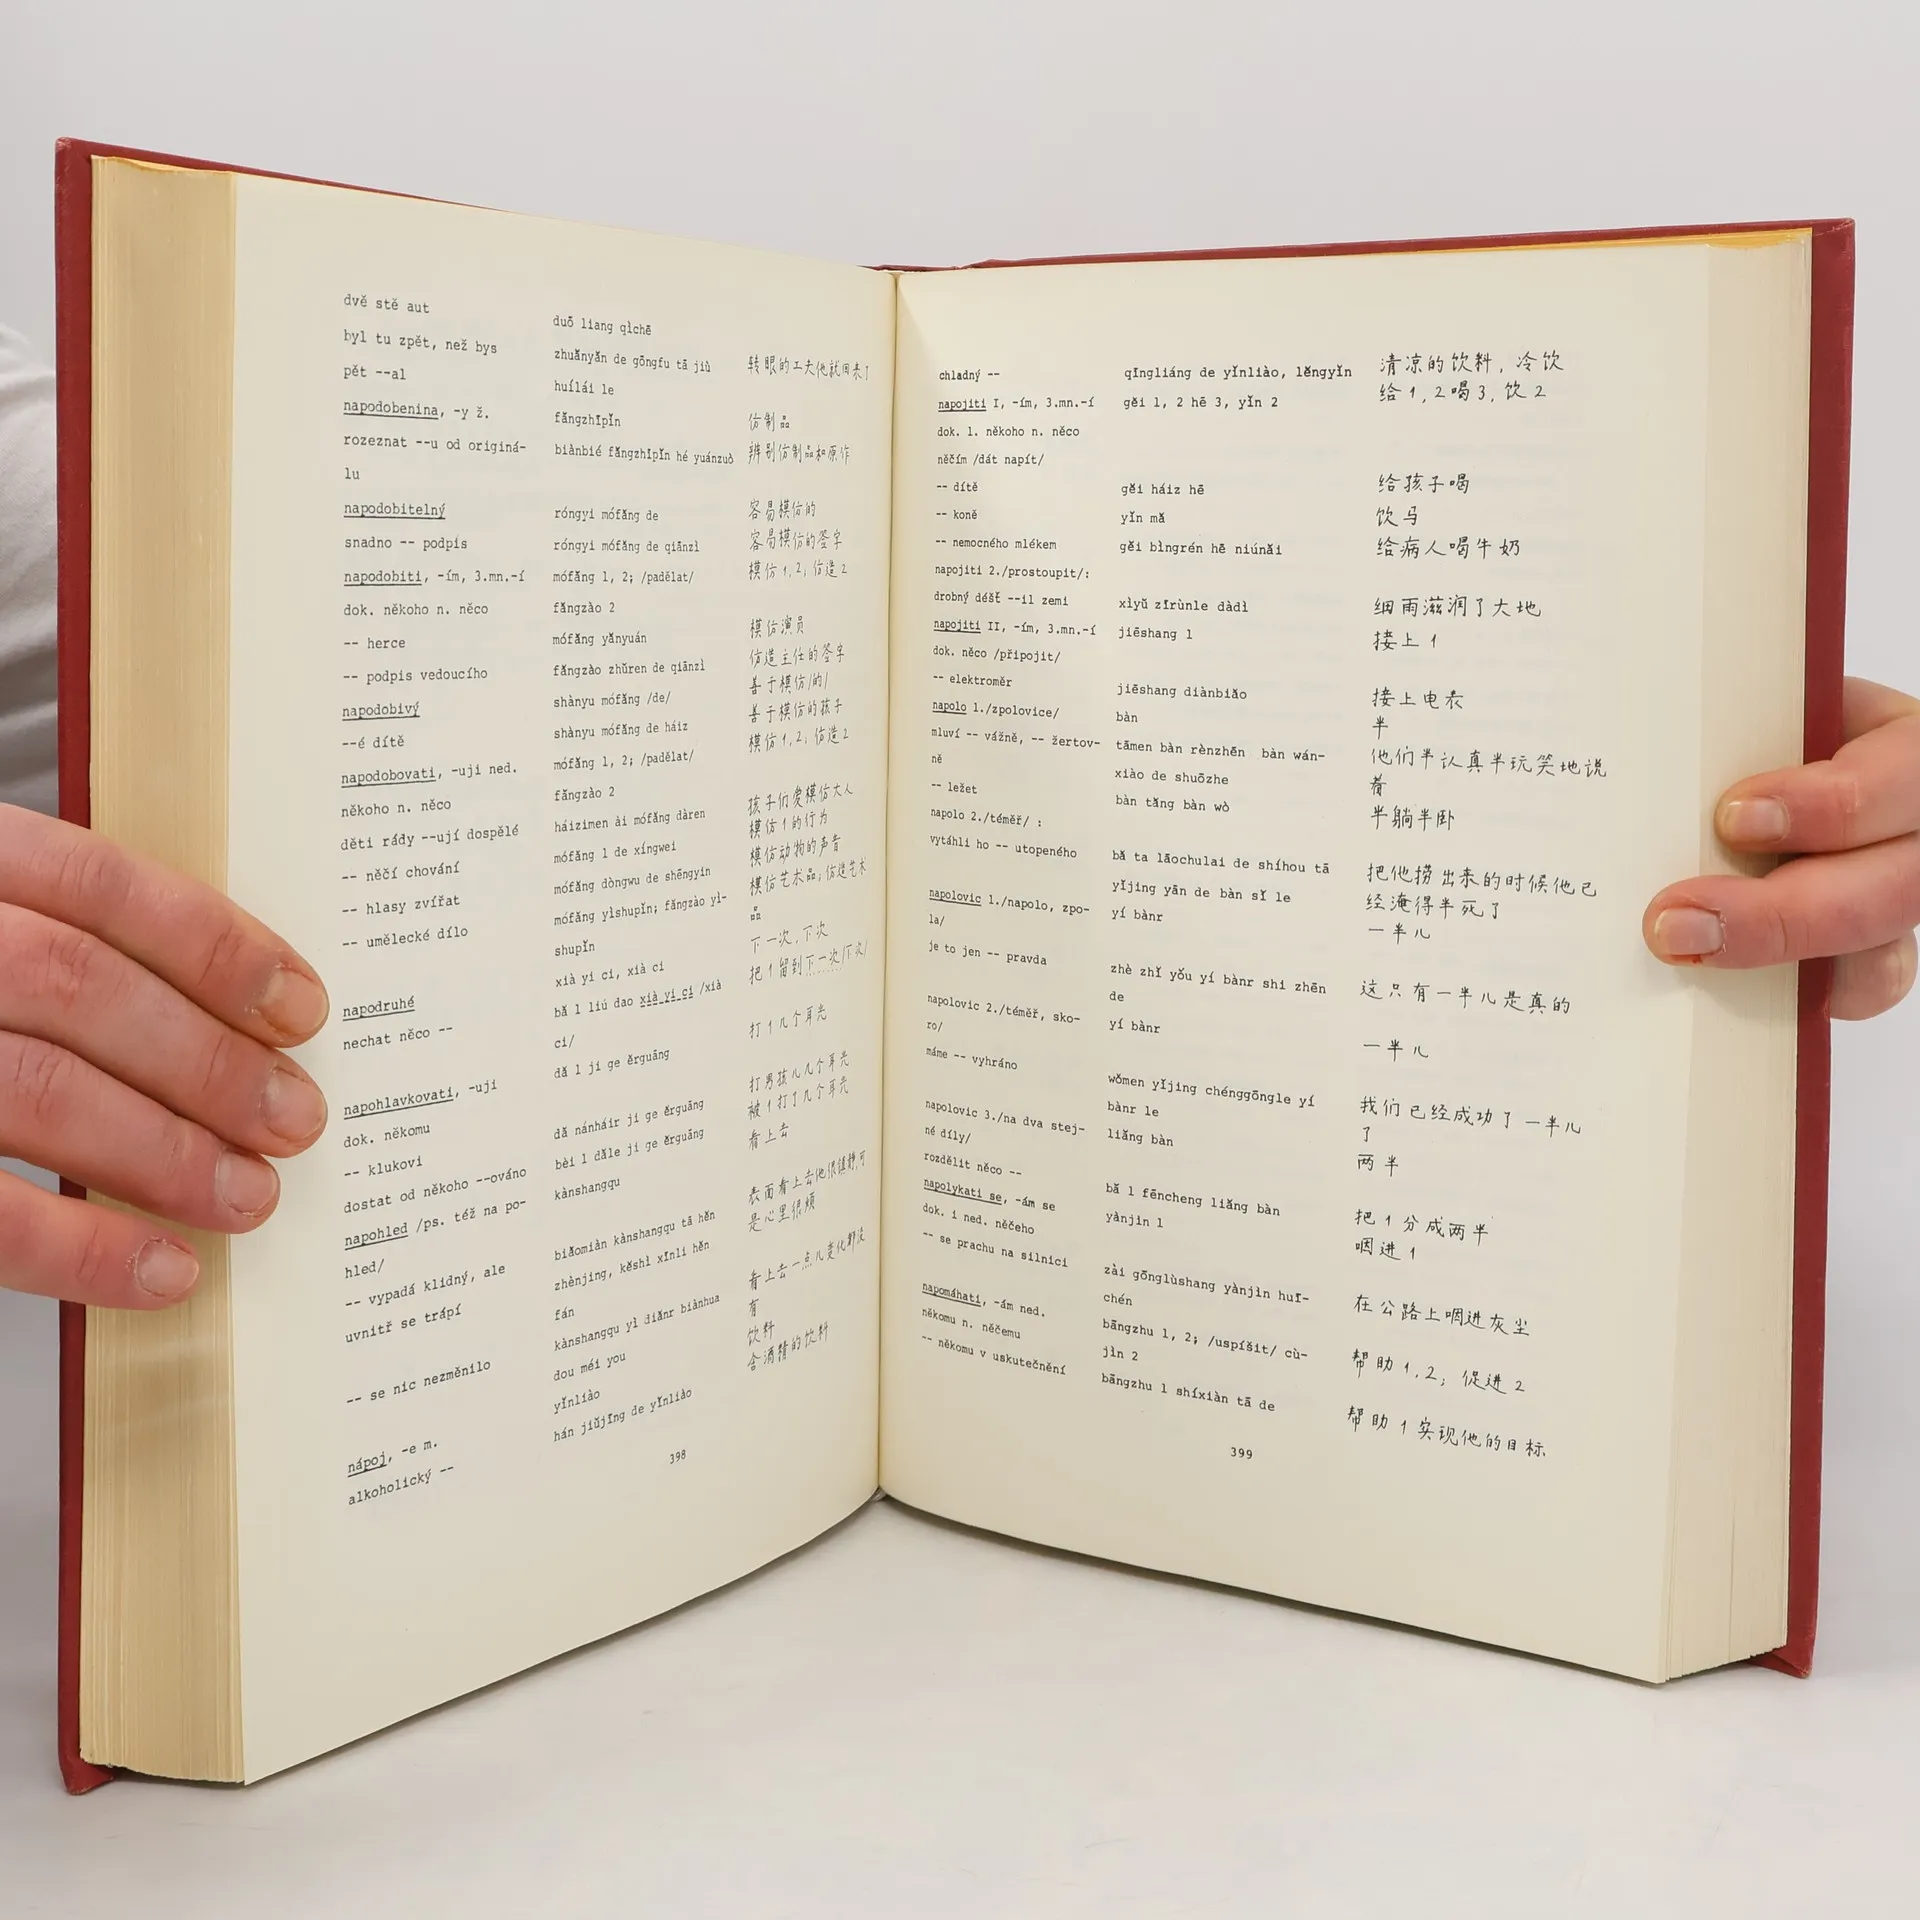 dvě stě aut
byl tu zpět, než bys
pět --al
napodobenina, -y ž.
rozeznat --u od originá-
lu
napodobitelný
snadno -- podpis
napodobiti, -ím, 3.mn.-í
dok. někoho n. něco
-- herce
-- podpis vedoucího
napodobivý
--é dítě
napodobovati, -uji ned.
někoho n. něco
děti rády --ují dospělé
-- něčí chování
-- hlasy zvířat
-- umělecké dílo
napodruhé
nechat něco --
napohlavkovati, -uji
dok. někomu
-- klukovi
dostat od někoho --ováno
napohled /ps. též na po-
hled/
-- vypadá klidný, ale
uvnitř se trápí
-- se nic nezměnilo
nápoj, -e m.
alkoholický --
duō liang qìchē
zhuǎnyǎn de gōngfu tā jiù
huílái le
fǎngzhìpǐn
biànbié fǎngzhìpǐn hé yuánzuò
róngyi mófǎng de
róngyi mófǎng de qiānzì
mófǎng 1, 2; /padělat/
fǎngzào 2
mófǎng yǎnyuán
fǎngzào zhǔren de qiānzì
shànyu mófǎng /de/
shànyu mófǎng de háiz
mófǎng 1, 2; /padělat/
fǎngzào 2
háizimen ài mófǎng dàren
mófǎng 1 de xíngwei
mófǎng dòngwu de shēngyin
mófǎng yìshupǐn; fǎngzào yì-
shupǐn
xià yi ci, xià ci
bǎ 1 liú dao xià yi ci /xià
ci/
dǎ 1 jí ge ěrguāng
dǎ nánháir ji ge ěrguāng
bèi 1 dǎle ji ge ěrguāng
kànshangqu
biǎomiàn kànshangqu tā hěn
zhènjing, kěshì xīnli hěn
fán
kànshangqu yì diǎnr biànhua
dou méi you
yǐnliào
hán jiǔjīng de yǐnliào
转眼的工夫他就回来了
仿制品
辨别仿制品和原作
容易模仿的
容易模仿的签字
模仿1,2;仿造2
模仿演员
仿造主任的签字
善于模仿/的/
善于模仿的孩子
模仿1,2;仿造2
孩子们爱模仿大人
模仿1的行为
模仿动物的声音
模仿艺术品;仿造艺术
品
下一次,下次
把1留到下一次/下次/
打1几个耳光
打男孩儿几个耳光
被1打了几个耳光
看上去
表面看上去他很镇静,可
是心里很烦
看上去一点儿变化都没
有
饮料
含酒精的饮料
398
chladný --
napojiti I, -ím, 3.mn.-í
dok. 1. někoho n. něco
něčím /dát napít/
-- dítě
-- koně
-- nemocného mlékem
napojiti 2./prostoupit/:
drobný déšť --il zemi
napojiti II, -ím, 3.mn.-í
dok. něco /připojit/
-- elektroměr
napolo 1./zpolovice/
mluví -- vážně, -- žertov-
ně
-- ležet
napolo 2./téměř/ :
vytáhli ho -- utopeného
napolovic 1./napolo, zpo-
la/
je to jen -- pravda
napolovic 2./téměř, sko-
ro/
máme -- vyhráno
napolovic 3./na dva stej-
né díly/
rozdělit něco --
napolykati se, -ám se
dok. i ned. něčeho
-- se prachu na silnici
napomáhati, -ám ned.
někomu n. něčemu
-- někomu v uskutečnění
qīngliáng de yǐnliào, lěngyǐn
gěi 1, 2 hē 3, yìn 2
gěi háiz hē
yìn mǎ
gěi bìngrén hē niúnǎi
xìyǔ zīrùnle dàdì
jiēshang 1
jiēshang diànbiǎo
bàn
tāmen bàn rènzhēn bàn wán-
xiào de shuōzhe
bàn tǎng bàn wò
bǎ ta lāochulai de shíhou tā
yǐjing yān de bàn sǐ le
yí bànr
zhè zhǐ yǒu yí bànr shi zhēn
de
yí bànr
wǒmen yǐjing chénggōngle yí
bànr le
liǎng bàn
bǎ 1 fēncheng liǎng bàn
yànjin 1
zài gōnglùshang yànjìn huī-
chén
bāngzhu 1, 2; /uspíšit/ cù-
jìn 2
bāngzhu 1 shíxiàn tā de
清凉的饮料,冷饮
给1,2喝3,饮2
给孩子喝
饮马
给病人喝牛奶
细雨滋润了大地
接上1
接上电表
半
他们半认真半玩笑地说
着
半躺半卧
把他捞出来的时候他已
经淹得半死了
一半儿
这只有一半儿是真的
一半儿
我们已经成功了一半儿
了
两半
把1分成两半
咽进1
在公路上咽进灰尘
帮助1,2;促进2
帮助1实现他的目标
399